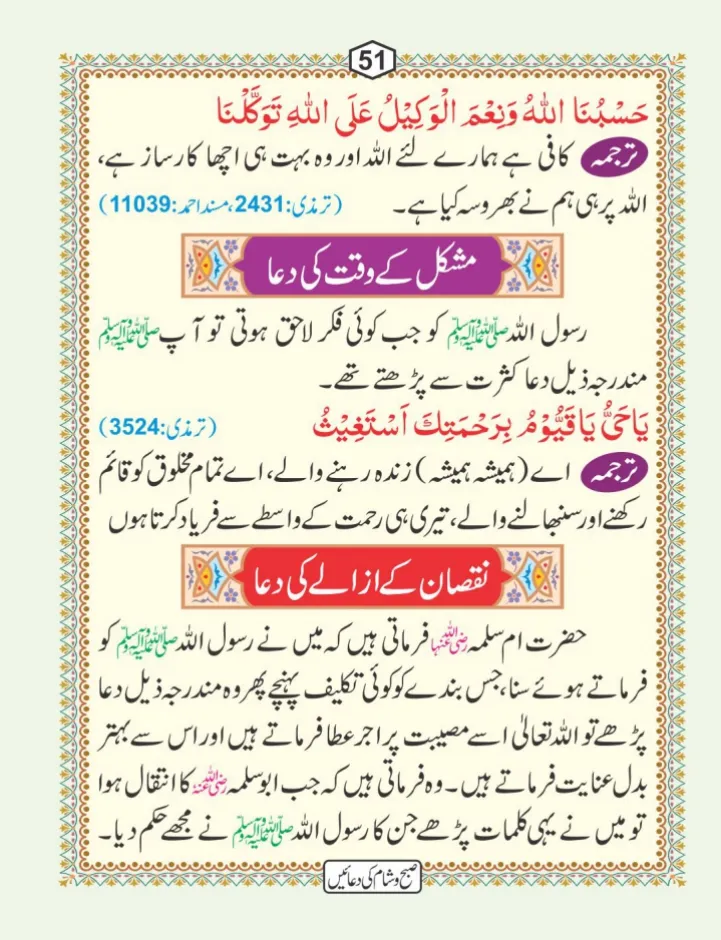 51
حَسْبُنَا اللّٰهُ وَنِعْمَ الْوَكِيْلُ عَلَى اللّٰهِ تَوَكَّلْنَا
ترجمہ کافی ہے ہمارے لئے اللہ اور وہ بہت ہی اچھا کارساز ہے،
اللہ پر ہی ہم نے بھروسہ کیا ہے۔ (ترمذی:2431، مسند احمد:11039)
مشکل کے وقت کی دعا
رسول اللہ ﷺ کو جب کوئی فکر لاحق ہوتی تو آپ ﷺ
مندرجہ ذیل دعا کثرت سے پڑھتے تھے۔
يَاحَيُّ يَاقَيُّوْمُ بِرَحْمَتِكَ اَسْتَغِيْثُ (ترمذی:3524)
ترجمہ اے (ہمیشہ ہمیشہ) زندہ رہنے والے، اے تمام مخلوق کو قائم
رکھنے اور سنبھالنے والے، تیری ہی رحمت کے واسطے سے فریاد کرتا ہوں
نقصان کے ازالے کی دعا
حضرت ام سلمہ رضی اللہ عنہا فرماتی ہیں کہ میں نے رسول اللہ ﷺ کو
فرماتے ہوئے سنا، جس بندے کو کوئی تکلیف پہنچے پھر وہ مندرجہ ذیل دعا
پڑھے تو اللہ تعالیٰ اسے مصیبت پر اجر عطا فرماتے ہیں اور اس سے بہتر
بدل عنایت فرماتے ہیں۔ وہ فرماتی ہیں کہ جب ابو سلمہ رضی اللہ عنہ کا انتقال ہوا
تو میں نے یہی کلمات پڑھے جن کا رسول اللہ ﷺ نے مجھے حکم دیا۔
صبح و شام کی دعائیں